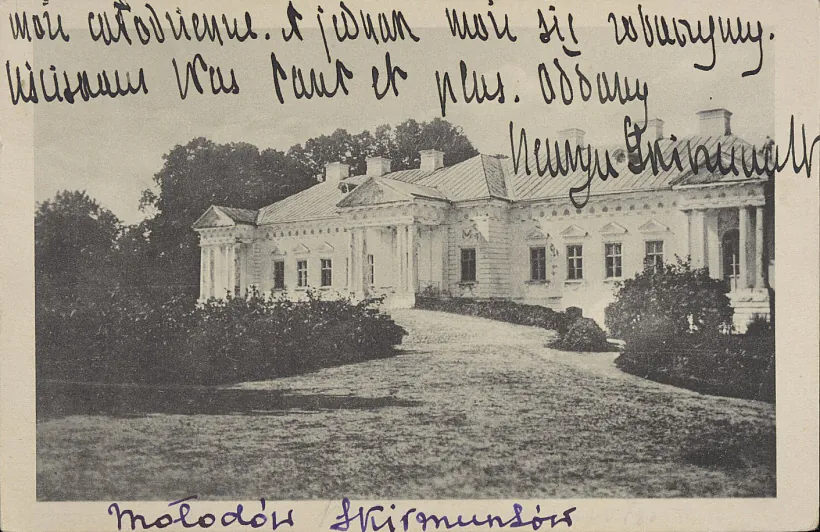 móu całodzienne. A jednak moū się zobaczymy.
Uściskam Was tant et plus. Oddany
Henryk Skirmuntt
Mołodów Skirmuntów